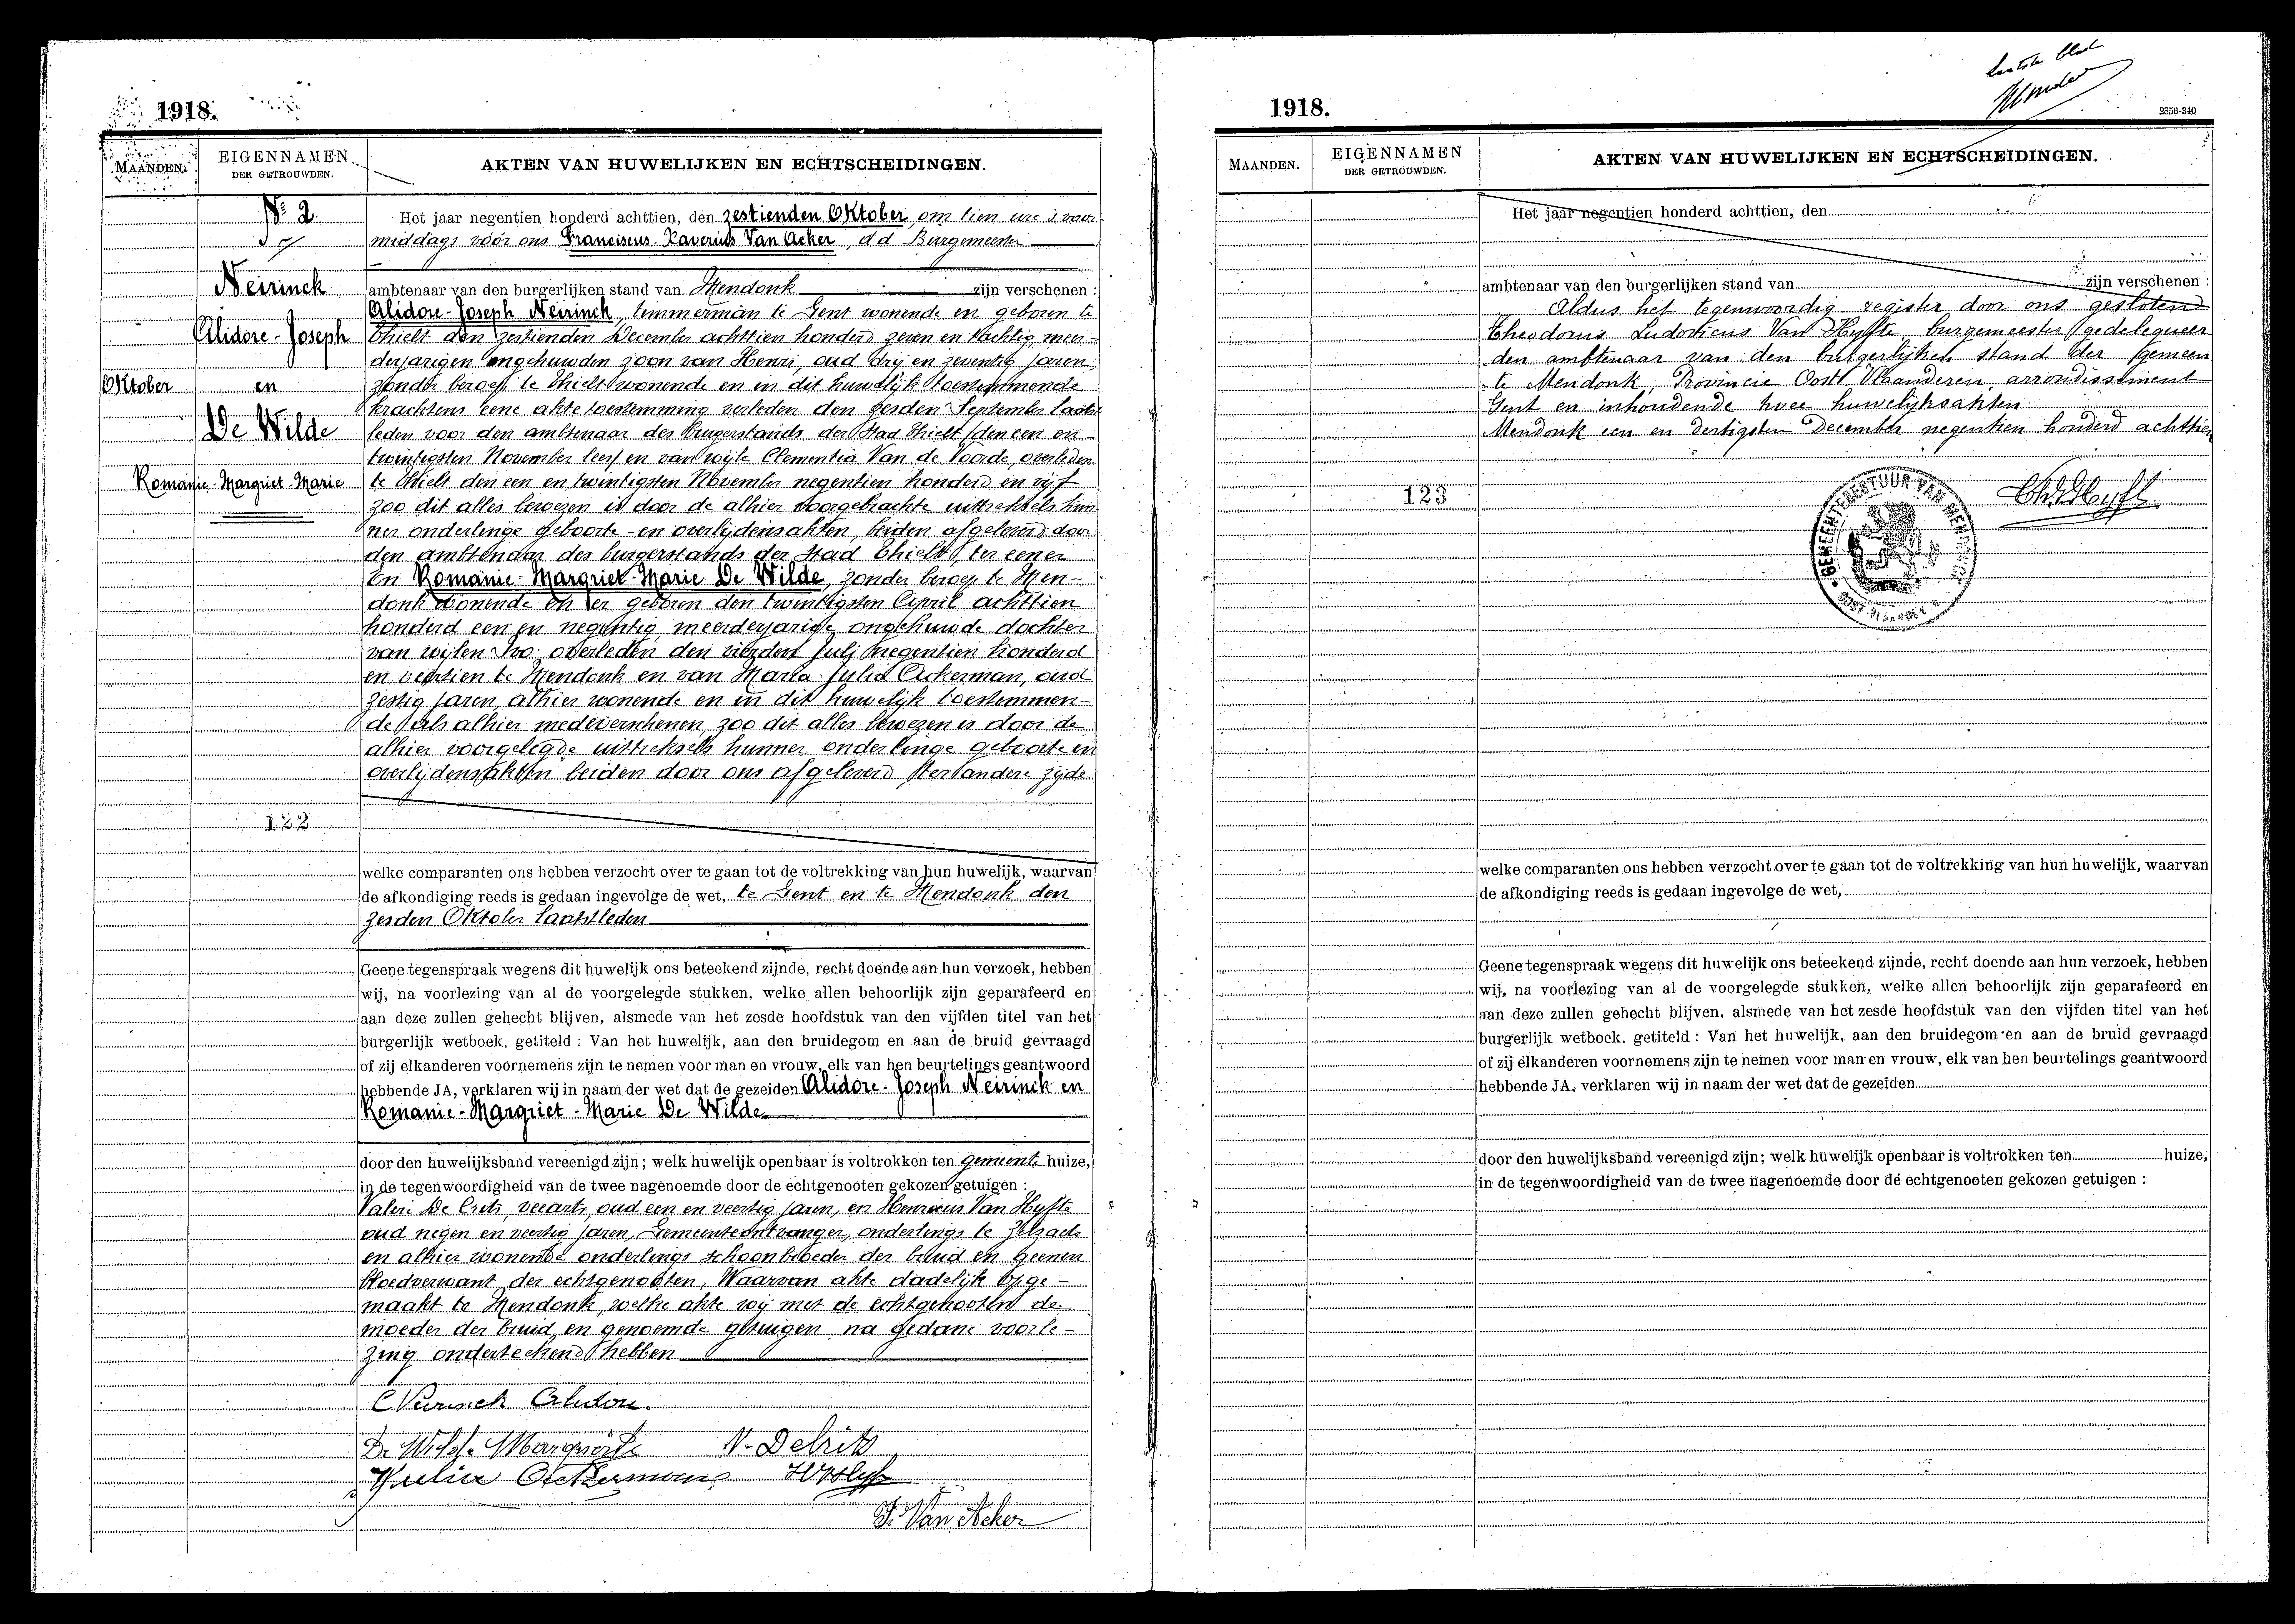 1918.
MAANDEN.
EIGENNAMEN
DER GETROUWDEN.
AKTEN VAN HUWELIJKEN EN ECHTSCHEIDINGEN.
Nr 2
Neirinck
Alidore-Joseph
Oktober
en
De Wilde
Romanie-Margriet-Marie
122
Het jaar negentien honderd achttien, den zestienden Oktober, om tien ure 's voor
middags vóór ons Franciscus-Xaverius Van Acker, d.d. Burgemeester
ambtenaar van den burgerlijken stand van Mendonk zijn verschenen :
Alidore-Joseph Neirinck, timmerman te Gent wonende en geboren te
Thielt den zestienden December achttien honderd zeven en tachtig, meer-
derjarigen ongehuwden zoon van Henri, oud drij en zeventig jaren,
zonder beroep te Thielt wonende en in dit huwelijk toestemmende
krachtens eene akte toestemming verleden den zesden September laatst
leden voor den ambtenaar des Burgerstands der Stad Thielt (den een en
twintigsten November leest en van wijle Clementia Van de Voorde, overleden
te Thielt den een en twintigsten November negentien honderd en vijf
zoo dit alles bewezen is door de alhier voorgebrachte uittreksels hun
ner onderlinge geboorte- en overlijdensakten, beiden afgeleverd door
den ambtenaar des burgerstands der Stad Thielt, ter eener
En Romanie-Margriet-Marie De Wilde, zonder beroep te Men-
donk wonende en er geboren den twintigsten April achttien
honderd een en negentig, meerderjarige ongehuwde dochter
van wijlen Ivo overleden den vierden Julij negentien honderd
en veertien te Mendonk en van Maria Julia Ackerman, oud
zestig jaren, alhier wonende en in dit huwelijk toestemmen-
de als alhier medeverschenen, zoo dit alles bewezen is door de
alhier voorgelegde uittreksels hunner onderlinge geboorte en
overlijdensakten beiden door ons afgeleverd ter andere zijde
welke comparanten ons hebben verzocht over te gaan tot de voltrekking van hun huwelijk, waarvan
de afkondiging reeds is gedaan ingevolge de wet, te Gent en te Mendonk den
zesden Oktober laatstleden
Geene tegenspraak wegens dit huwelijk ons beteekend zijnde, recht doende aan hun verzoek, hebben
wij, na voorlezing van al de voorgelegde stukken, welke allen behoorlijk zijn geparafeerd en
aan deze zullen gehecht blijven, alsmede van het zesde hoofdstuk van den vijfden titel van het
burgerlijk wetboek, getiteld : Van het huwelijk, aan den bruidegom en aan de bruid gevraagd
of zij elkanderen voornemens zijn te nemen voor man en vrouw, elk van hen beurtelings geantwoord
hebbende JA, verklaren wij in naam der wet dat de gezeiden Alidore-Joseph Neirinck en
Romanie-Margriet-Marie De Wilde
door den huwelijksband vereenigd zijn; welk huwelijk openbaar is voltrokken ten gemeente huize,
in de tegenwoordigheid van de twee nagenoemde door de echtgenooten gekozen getuigen :
Valeri De Crits, veearts, oud een en veertig jaren, en Henricus Van Hyfte
oud negen en veertig jaren, Gemeenteontvanger, onderlings te Zelzate
en alhier wonende onderlings schoonbroeder der bruid en geenen
bloedverwant der echtgenooten, Waarvan akte dadelijk opge-
maakt te Mendonk, welke akte wij met de echtgenooten de
moeder der bruid en genoemde getuigen na gedane voorle-
zing onderteekend hebben
Neirinck Alidore.
De Wilde Marguerite
Julia Ackermans
F. Van Acker
1918.
2856-340
MAANDEN.
EIGENNAMEN
DER GETROUWDEN.
AKTEN VAN HUWELIJKEN EN ECHTSCHEIDINGEN.
123
Het jaar negentien honderd achttien, den
ambtenaar van den burgerlijken stand van zijn verschenen :
Aldus het tegenwoordig register door ons gesloten
Theodorus Ludovicus Van Hyfte burgemeester gedelegueer
den ambtenaar van den burgerlijken stand der gemeen
te Mendonk, Provincie Oost Vlaanderen, arrondissement
Gent en inhoudende twee huwelijksakten
Mendonk een en dertigsten December negentien honderd achttien
GEMEENTEBESTUUR VAN MENDONCK
welke comparanten ons hebben verzocht over te gaan tot de voltrekking van hun huwelijk, waarvan
de afkondiging reeds is gedaan ingevolge de wet,
Geene tegenspraak wegens dit huwelijk ons beteekend zijnde, recht doende aan hun verzoek, hebben
wij, na voorlezing van al de voorgelegde stukken, welke allen behoorlijk zijn geparafeerd en
aan deze zullen gehecht blijven, alsmede van het zesde hoofdstuk van den vijfden titel van het
burgerlijk wetboek, getiteld : Van het huwelijk, aan den bruidegom en aan de bruid gevraagd
of zij elkanderen voornemens zijn te nemen voor man en vrouw, elk van hen beurtelings geantwoord
hebbende JA, verklaren wij in naam der wet dat de gezeiden
door den huwelijksband vereenigd zijn; welk huwelijk openbaar is voltrokken ten huize,
in de tegenwoordigheid van de twee nagenoemde door de echtgenooten gekozen getuigen :